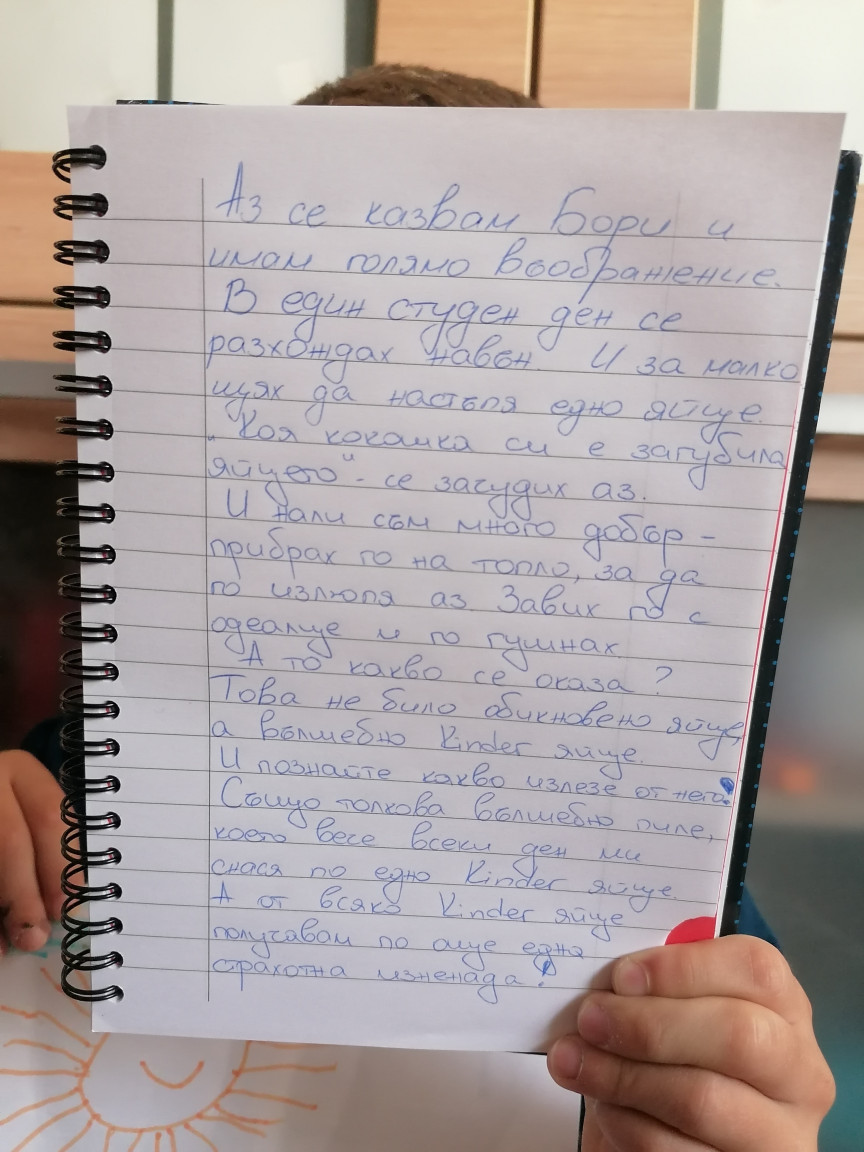 Аз се казвам Бори и
имам голямо въображение.
В един студен ден се
разхождах навън. И за малко
щях да настъпя едно яйце.
„Коя кокошка си е загубила
яйцето" - се зачудих аз.
И нали съм много добър -
прибрах го на топло, за да
го излюпя аз. Завих го с
одеалце и го гушнах.
А то какво се оказа?
Това не било обикновено яйце,
а вълшебно Kinder яйце.
И познайте какво излезе от него?
Също толкова вълшебно пиле,
което вече всеки ден ми
снася по едно Kinder яйце.
А от всяко Kinder яйце
получавам по още една
страхотна изненада!